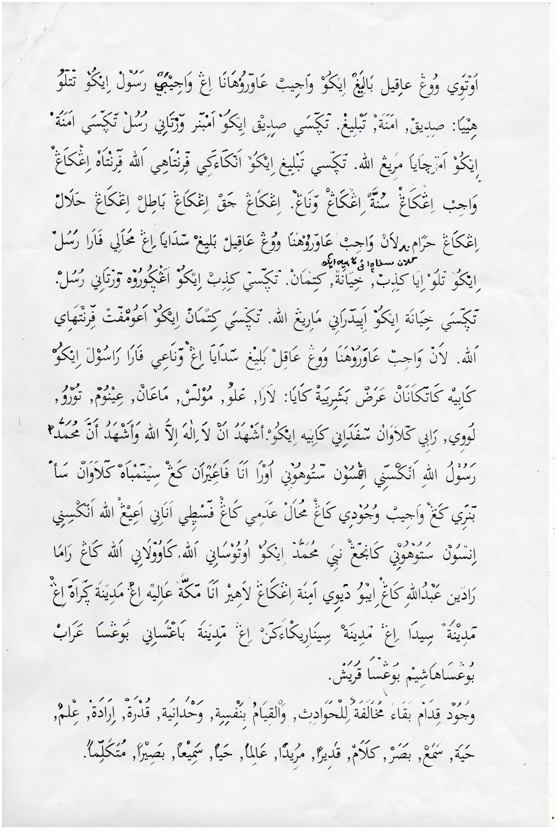 اَوْتَوِي وَوڠْ عاَقِيل بَالِيغْ اِيكُوْ وَاجِيبْ عَاوْرُوْهَانَا اِڠْ وَاجِيْبَيْ رَسُوْلْ اِيْكُوْ تَتَلُوْ
هِيْيَا: صِدِيقْ, اَمَنَةْ, تَبْلِيغْ. تَكْسِي صِدِيْقْ اِيكُوْ اَمْبَنَر وَرْتَانِي رُسُلْ تَكْسِي اَمَنَةْ
اِيْكُوْ اَمَرْچَايَا مَرِيڠْ الله. تَكْسِي تَبْلِيغْ اِيْكُوْ اَنَكَاءَكِي فَرِنْتَاهِي اَلله فَرِنْتَاهْ اِڠْكَاڠْ
وَاجِبْ اِڠْكَاڠْ سُنَّةْ اِڠْكَاڠْ وَنَاڠْ. اِڠْكَاڠْ حَقْ اِڠْكَاڠْ بَاطِلْ اِڠْكَاڠْ حَلَالْ
اِڠْكَاڠْ حَرَامْ. لَانْ وَاجِبْ عَاوَرُوْهَنَا وَوڠْ عَاقِيْل بَلِيغْ سَدَايَا اِڠْ مُحَالِي فَارَا رُسُلْ
اِيْكُوْ تَلُوْ اِيَا كِذِبْ, خِيَانَةْ, كِتْمَانْ. تَكْسِيْ كِذِبْ اِيْكُوْ اَڠْكُورُوْهْ وَرْتَانِي رُسُلْ.
تَكْسَي خِيَانَة اِيكُوْ اِيِيْدَرَانِي مَارِيڠْ الله. تَكْسَي كِتْمَانْ اِيكُوْ اَعُوْمْفَتْ فَرِنْتْهَاي
اَلله. لَانْ وَاجِبْ عَاوَرُوْهَنَا وَوڠْ عَاقِلْ بَلِيغْ سَدَايَا اِڠْ وَنَاعِي فَارَا رَاسُوْلْ اِيْكُوْ
كَابَيِهْ كَاتَكَانَانْ عَرَضْ بَشَرِيَيَةْ كَايَا: لَارَا, عَلُوْ, مُوْلَسْ, مَاعَانْ, عِيْنُوْمْ, تُوْرُوْ,
لُوْوِي, رَابِي كَلَاوَانْ سَفَدَانِي كَابَيِه اِيْكُوْ. أَشْهَدُ اَنْ لَا اِلٰهَ اِلَّا الله وَأَشْهَدُ اَنَّ مُحَمَّدًا
رَسُوْلُ الله اَنَكْسَنِي اِڠْسُوْن سَتُوْهُوْنِي اَوْرَا اَنَا فَاعِيْرَان كَڠْ سِيْنَمْبَاهْ كَلَاوَانْ سَأْ
بَنَرِي كَڠْ وَاجِيبْ وُجُوْدِي كَاڠْ مُحَالْ عَدَمِي كَاڠْ فَسْطِي اَنَانِي اَعِيْڠْ الله اَنَكْسِنِي
اِنْسُوْن سَتُوْهُوْنِي كَانْجَڠْ نَبِي مُحَمَّدْ اِيْكُوْ اوْتُوْسَانِي الله. كَاوُوْلَانِي الله كَاڠْ رَامَا
رَادَيِن عَبْدُاللهِ كَاڠْ اِيْبُوْ دَيْوِي اَمِنَة اِڠْكَاڠْ لَاهِيْر اَنَا مَكَّةْ عَالِيْهْ اِڠْ مَدِيْنَة كَرَاهْ اِڠْ
مَدِيْنَةْ سِيْدَا اِڠْ مَدِيْنَةْ سِيْنَارَيْكَاءَكَنْ اِڠْ مَدِيْنَة بَاعْسَانِي بَوڠْسَا عَرَابْ
بُوڠْسَاهَاشِيْمْ بَوڠْسَا قُرَيْش.
وُجُوْدْ قِدَامْ بَقَاء مُخَالَفَةْ لِلْحَوَادِثِ, وَالْقِيَامُ بِنَفْسِهِ, وَحْدَانِيَة, قُدْرَةْ, اِرَادَةْ, عِلْمٌ,
حَيَة, سَمَعْ, بَصَرْ, كَلَامْ, قَدِيرًا, مُرِيْدًا, عَالِمًا, حَيًّا, سَمِيْعًا, بَصِيْرًا, مُتَكَلِّمًا.